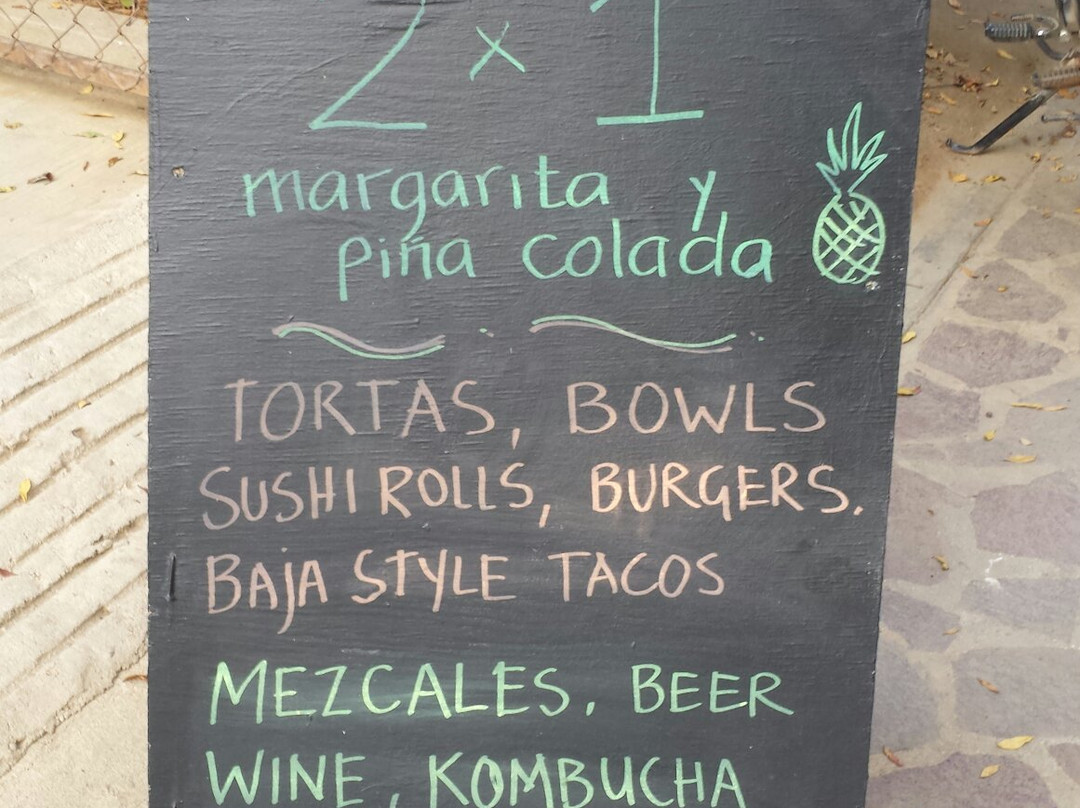 2 x 1
margarita y
piña colada
TORTAS, BOWLS
SUSHI ROLLS, BURGERS.
BAJA STYLE TACOS
MEZCALES, BEER
WINE, KOMBUCHA